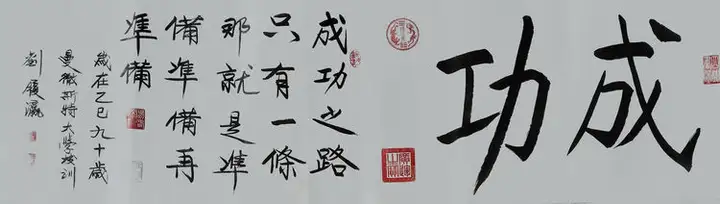 成功
成功之路
只有一條
那就是準
備準備再
準備
歲在乙巳九十歲
曼徹斯特大學校訓